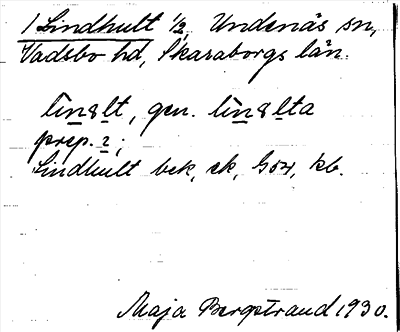 1 Lindhult 1/2 Undenäs sn,
Vadsbo hd, Skaraborgs län.
lìnəlt, gen. lìnəlta
prep. 2;
Lindhult bek, ek, Gox, kb.
Maja Bergstrand 1930.